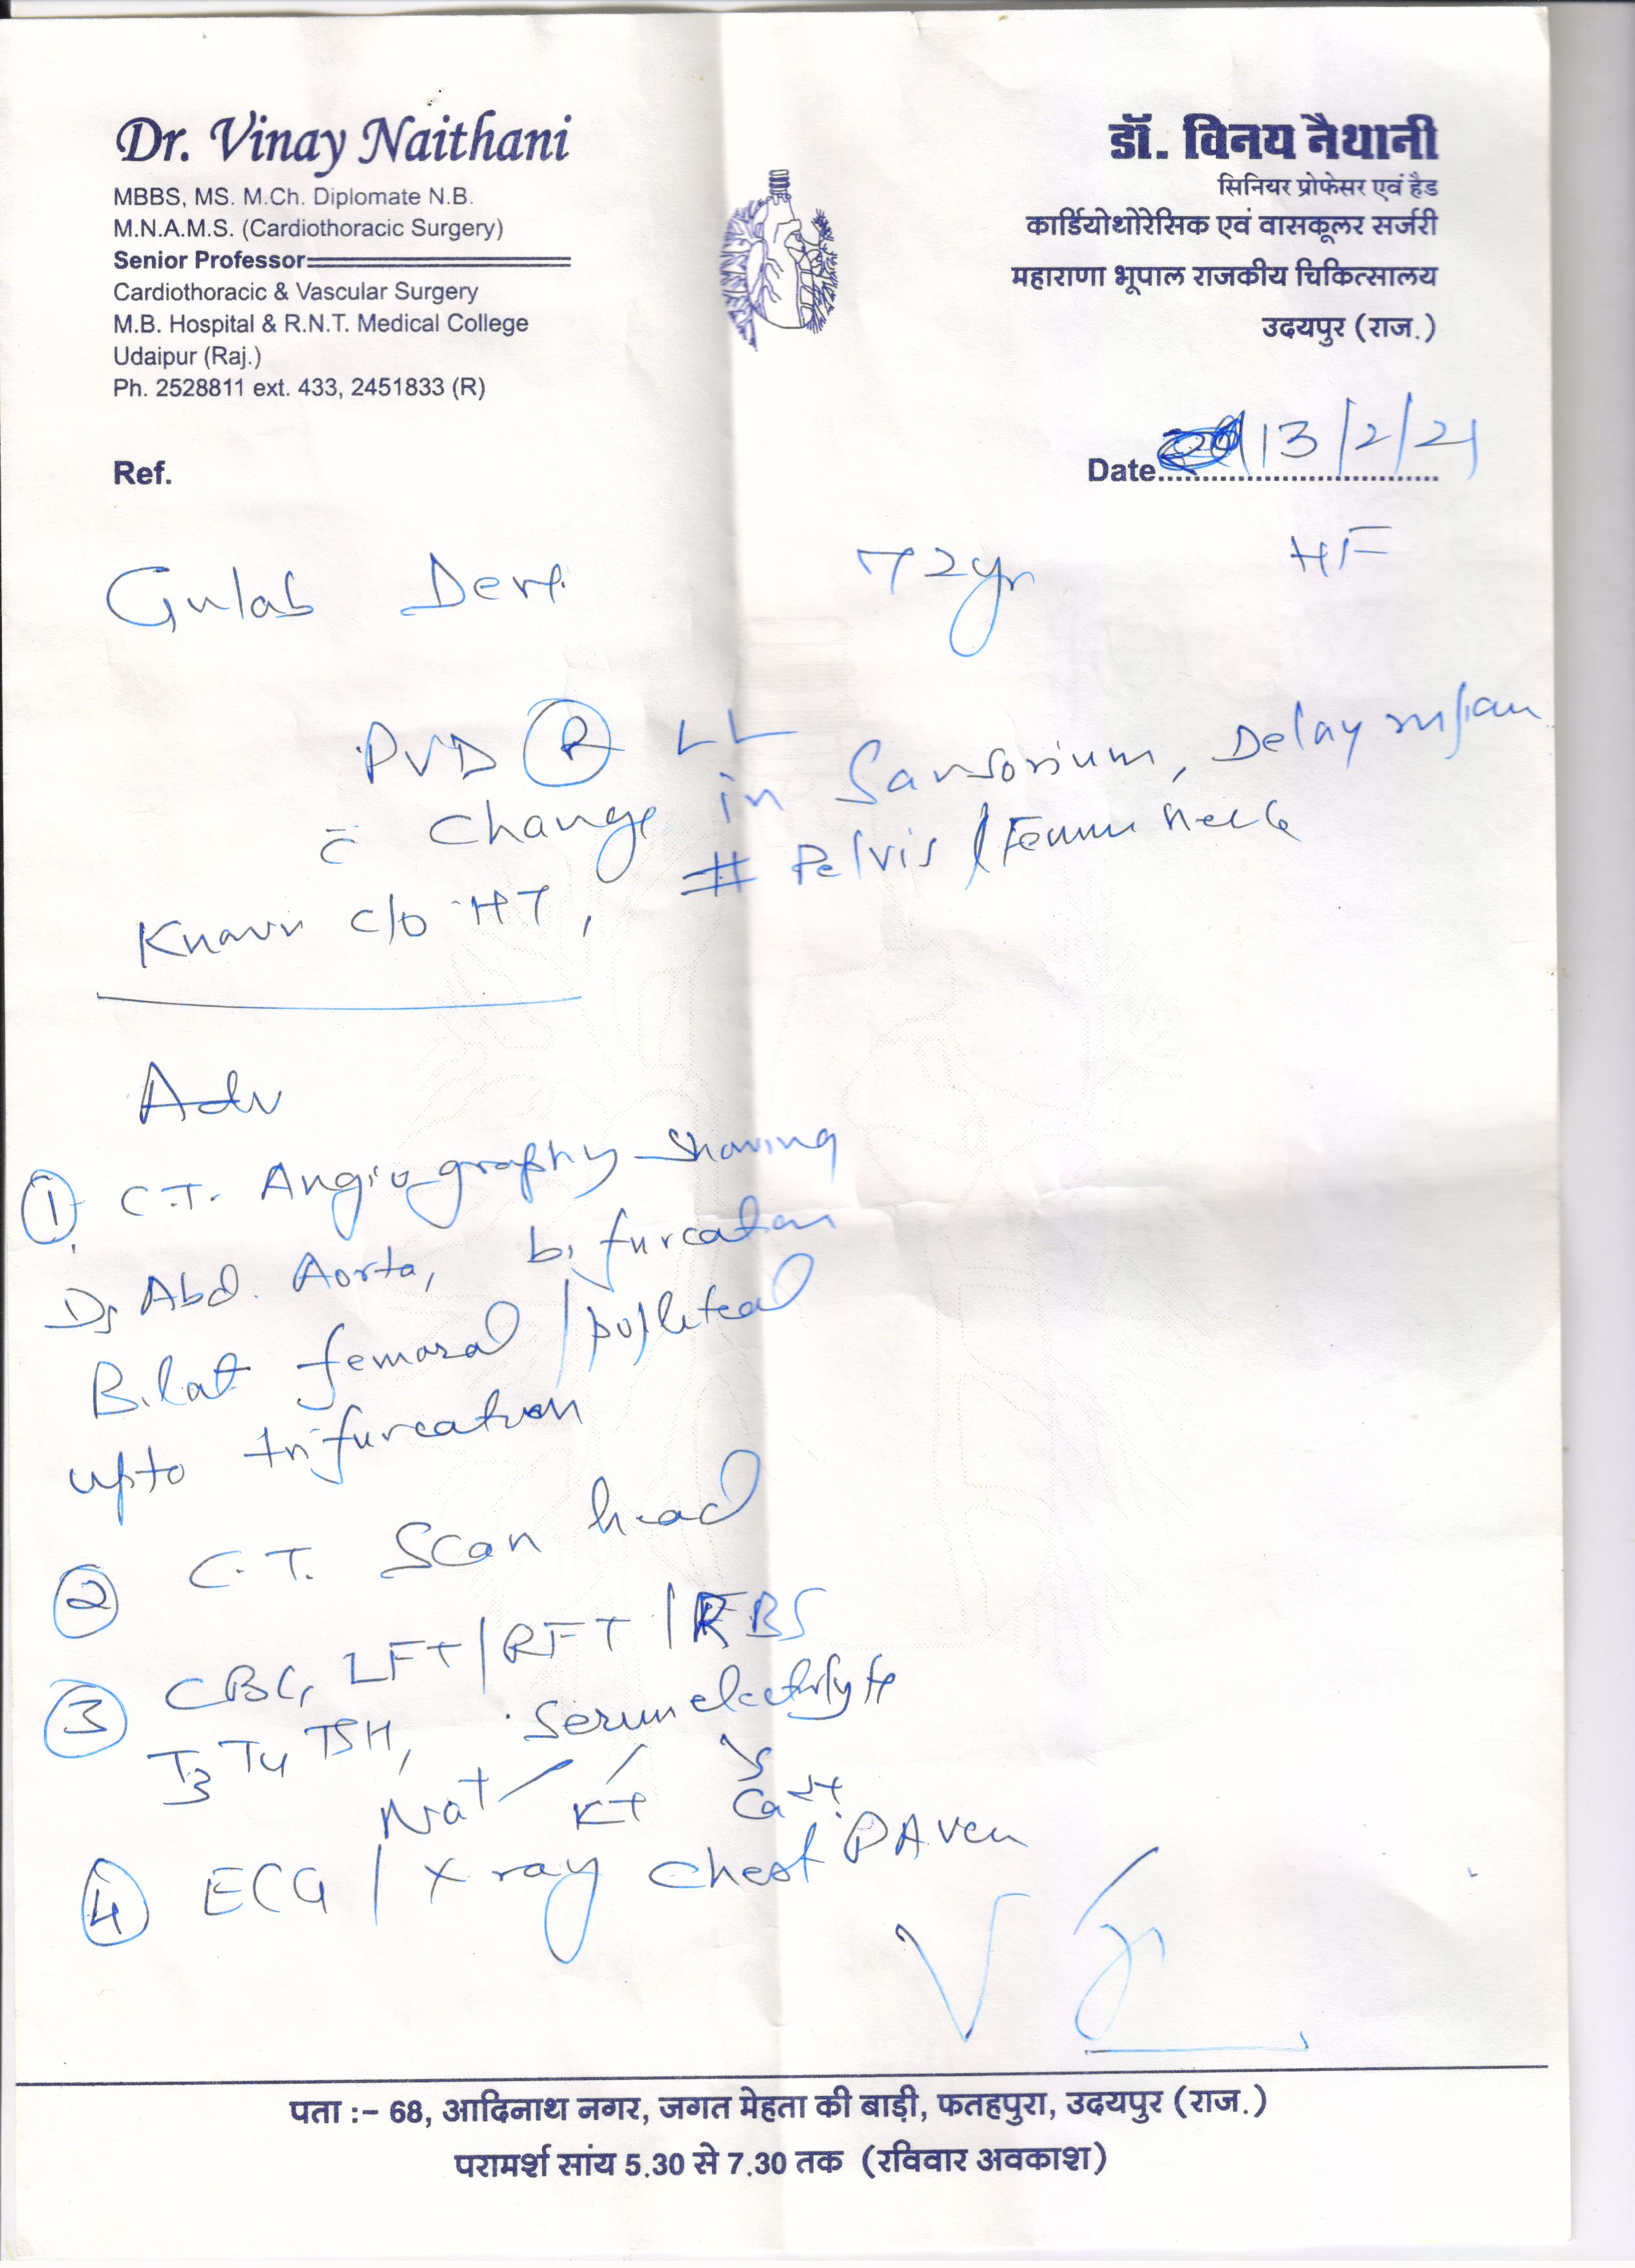 Dr. Vinay Naithani
MBBS, MS. M.Ch. Diplomate N.B.
M.N.A.M.S. (Cardiothoracic Surgery)
Senior Professor
Cardiothoracic & Vascular Surgery
M.B. Hospital & R.N.T. Medical College
Udaipur (Raj.)
Ph. 2528811 ext. 433, 2451833 (R)
डॉ. विनय नैथानी
सिनियर प्रोफेसर एवं हैड
कार्डियोथोरेसिक एवं वासकूलर सर्जरी
महाराणा भूपाल राजकीय चिकित्सालय
उदयपुर (राज.)
Ref.
Date 13/2/21
Gulab 72yr H/F
PVD R LL
c̄ change in Sansorium, Delay
Known c/o HT, # Pelvis / Femur neck
Adv
1 C.T. Angiography showing
Ds Abd. Aorta, bifurcation
Bilat femoral / popliteal
upto trifurcation
2 C.T. Scan head
3 CBC, LFT/RFT/RBS
T3 T4 TSH, Serum electrolyte
Na+ K+ Ca2+
4 ECG / X ray chest PA View
पता :– 68, आदिनाथ नगर, जगत मेहता की बाड़ी, फतहपुरा, उदयपुर (राज.)
परामर्श सांय 5.30 से 7.30 तक (रविवार अवकाश)